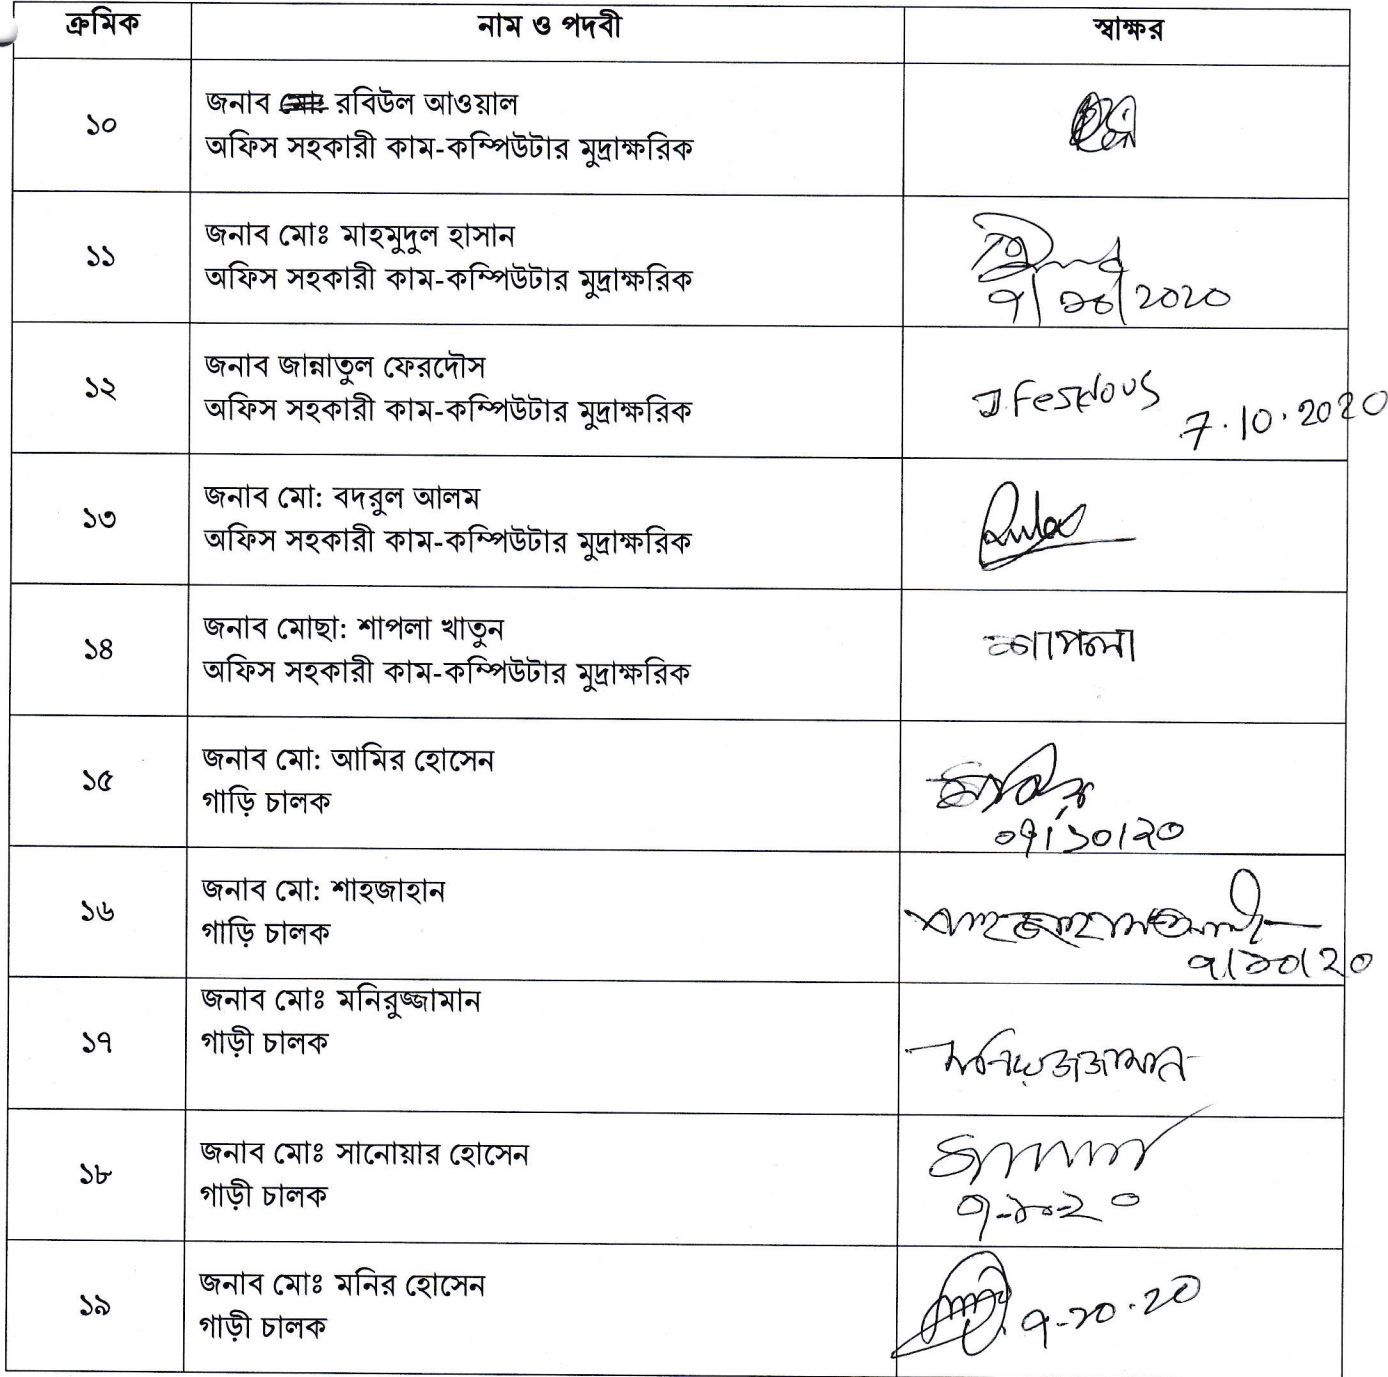 ক্রমিক নাম ও পদবী স্বাক্ষর
১০ জনাব মোঃ রবিউল আওয়াল
অফিস সহকারী কাম-কম্পিউটার মুদ্রাক্ষরিক
১১ জনাব মোঃ মাহমুদুল হাসান
অফিস সহকারী কাম-কম্পিউটার মুদ্রাক্ষরিক
৭/১০/2020
১২ জনাব জান্নাতুল ফেরদৌস
অফিস সহকারী কাম-কম্পিউটার মুদ্রাক্ষরিক
J.Ferdous
7.10.2020
১৩ জনাব মো: বদরুল আলম
অফিস সহকারী কাম-কম্পিউটার মুদ্রাক্ষরিক
১৪ জনাব মোছা: শাপলা খাতুন
অফিস সহকারী কাম-কম্পিউটার মুদ্রাক্ষরিক
শাপলা
১৫ জনাব মো: আমির হোসেন
গাড়ি চালক
০৭/১০/২০
১৬ জনাব মো: শাহজাহান
গাড়ি চালক
৭/১০/২০
১৭ জনাব মোঃ মনিরুজ্জামান
গাড়ী চালক
মনিরুজজামান
১৮ জনাব মোঃ সানোয়ার হোসেন
গাড়ী চালক
৭-১০-২০
১৯ জনাব মোঃ মনির হোসেন
গাড়ী চালক
৭-১০-২০